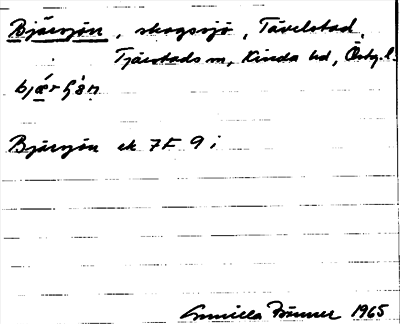 Bjärsjön, skogssjö, Tävelstad,
Tjärstads sn, Kinda hd, Östg.l.
Bjärsjön ek 7F 9i
Gunilla Fröner 1965